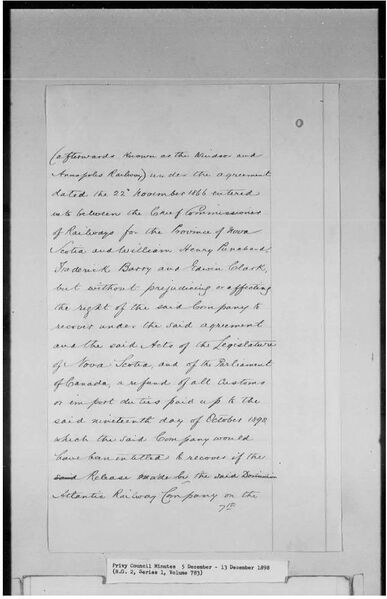 (afterwards known as the Windsor and
Annapolis Railway) under the agreement
dated the 22d November 1866 entered
into between the Chief Commissioner
of Railways for the Province of Nova
Scotia and William Henry Punchard
Frederick Barry and Edwin Clark,
but without prejudicing or affecting
the right of the said Company to
recover under the said agreement
and the said Acts of the Legislature
of Nova Scotia, and of the Parliament
of Canada, a refund of all Customs
or import duties paid up to the
said nineteenth day of October 1898
which the said Company would
have been entitled to recover if the
said Release made by the said Dominion
Atlantic Railway Company on the
7th
Privy Council Minutes 5 December - 13 December 1898
(R.G. 2, Series 1, Volume 783)